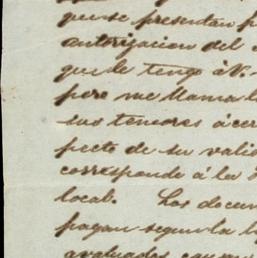 que se presentan p
autorizacion del
que le tengo á V.
pero me llama l
sus tenores á cer
pecto de su valid
corresponde á la
local. Los docum
pagan segun la l
avaluados